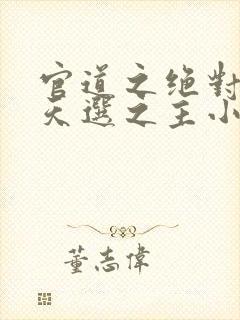 官道之绝對
天選之主小
董志偉